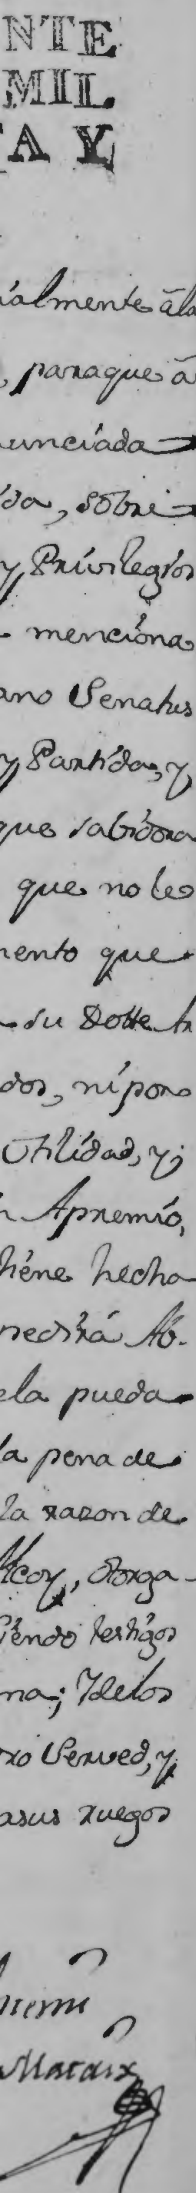 NTE
MIL
TA Y
ialmente ãla
, paraque ã
unciada
ida, sobre
y Privilegios
menciona
ano Senatus
y Partida, y
que sabidora
que no le
mento que
su Dotte
dos, ni por
Utilidad, y
n Apremio,
tiene hecha
pedirá Ab-
ela pueda
la pena de
la razon de
Alcoy, otorga-
siendo testigos
na; Y delos
ro Served, y
asus ruegos
ntemi
Mataix